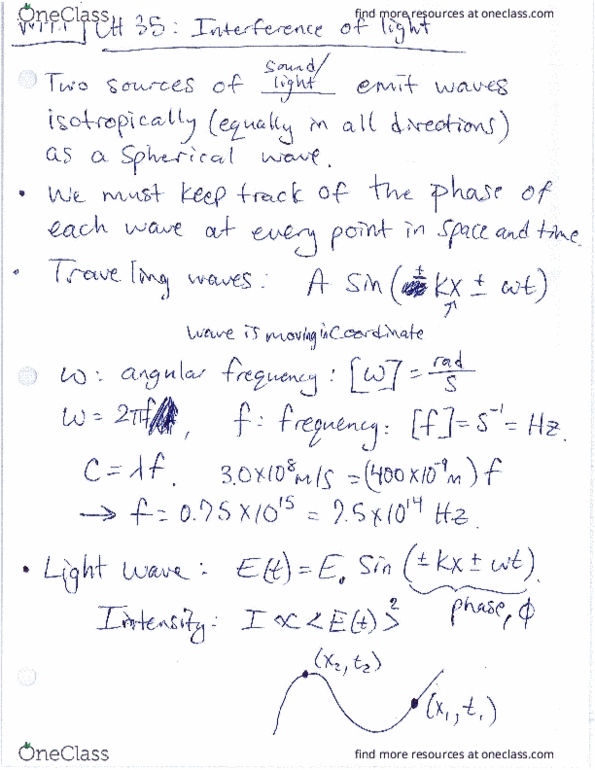 OneClass find more resources at oneclass.com
CH 35: Interference of light
Two sources of sound/light emit waves
isotropically (equally in all directions)
as a spherical wave.
• We must keep track of the phase of
each wave at every point in space and time.
• Traveling waves: A sin(± kx ± ωt)
wave is moving in coordinate
ω: angular frequency: [ω] = rad/s
ω = 2πf, f: frequency: [f] = s⁻¹ = Hz.
C = λf. 3.0×10⁸ m/s = (400×10⁻⁹ m) f
→ f = 0.75×10¹⁵ = 7.5×10¹⁴ Hz.
• Light wave: E(t) = E₀ sin(± kx ± ωt).
phase, ϕ
Intensity: I ∝ <E(t)>²
(x₂, t₂)
(x₁, t₁)
OneClass find more resources at oneclass.com